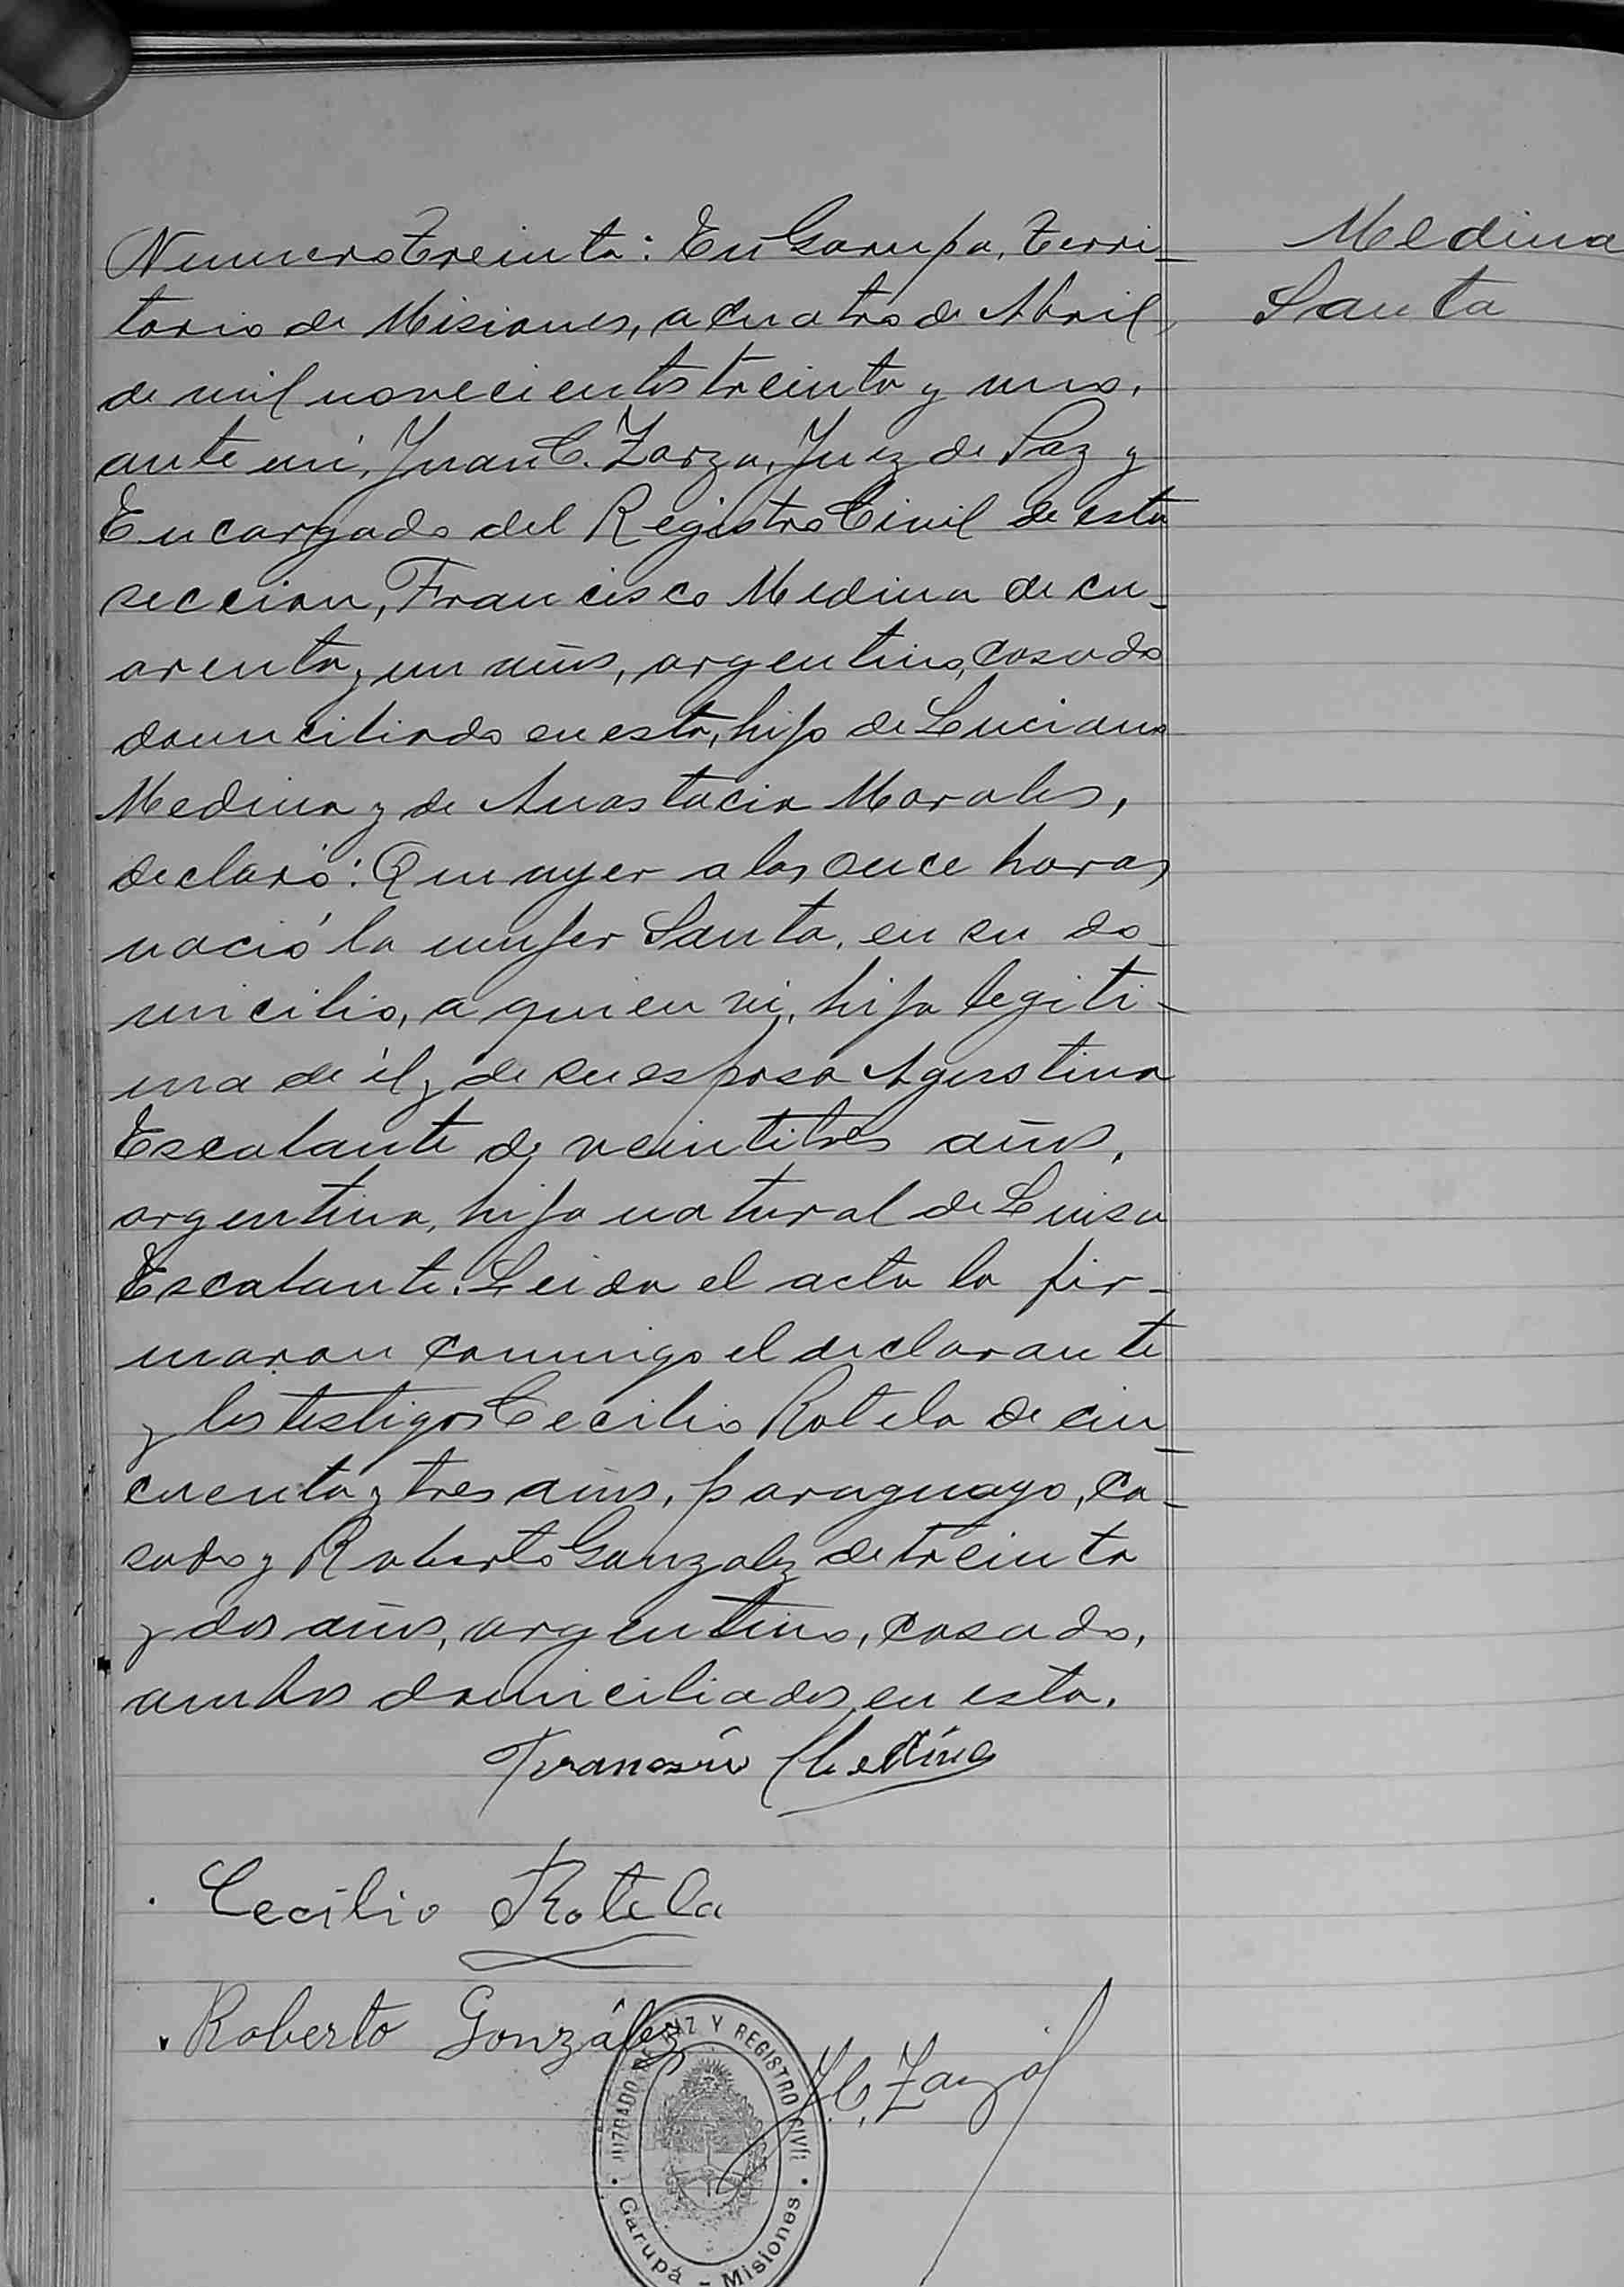 Medina
Santa
Numero treinta: En Garupa, Terri-
torio de Misiones, a cuatro de Abril
de mil novecientos treinta y uno,
ante mi, Juan C. Zarza, Juez de Paz y
Encargado del Registro Civil de esta
seccion, Francisco Medina de cu-
arenta y un años, argentino, casado
domiciliado en esta, hijo de Luciano
Medina y de Anastacia Morales,
declaró: Que ayer a las once horas
nació la mujer Santa, en su do-
micilio, a quien vi, hija legiti-
ma de él y de su esposa Agustina
Escalante de veintitres años,
argentina, hija natural de Luisa
Escalante. Leida el acta la fir-
maron conmigo el declarante
y los testigos Cecilio Rotela de cin-
cuenta y tres años, paraguayo, ca-
sado y Roberto Gonzalez de treinta
y dos años, argentino, casado,
ambos domiciliados en esta.
Francisco Medina
Cecilio Rotela
Roberto González
J. C. Zarza
JUZGADO DE PAZ Y REGISTRO CIVIL
Garupá - Misiones